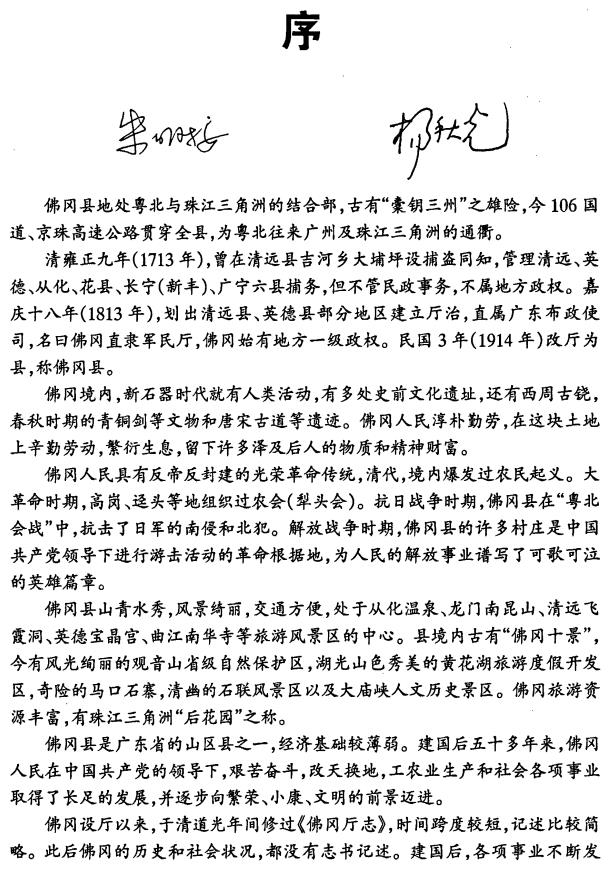 序
杨秋光
佛冈县地处粤北与珠江三角洲的结合部,古有“橐钥三州”之雄险,今106国
道、京珠高速公路贯穿全县,为粤北往来广州及珠江三角洲的通衢。
清雍正九年(1713年),曾在清远县吉河乡大埔坪设捕盗同知,管理清远、英
德、从化、花县、长宁(新丰)、广宁六县捕务,但不管民政事务,不属地方政权。嘉
庆十八年(1813年),划出清远县、英德县部分地区建立厅治,直属广东布政使
司,名曰佛冈直隶军民厅,佛冈始有地方一级政权。民国3年(1914年)改厅为
县,称佛冈县。
佛冈境内,新石器时代就有人类活动,有多处史前文化遗址,还有西周古铙,
春秋时期的青铜剑等文物和唐宋古道等遗迹。佛冈人民淳朴勤劳,在这块土地
上辛勤劳动,繁衍生息,留下许多泽及后人的物质和精神财富。
佛冈人民具有反帝反封建的光荣革命传统,清代,境内爆发过农民起义。大
革命时期,高岗、迳头等地组织过农会(犁头会)。抗日战争时期,佛冈县在“粤北
会战”中,抗击了日军的南侵和北犯。解放战争时期,佛冈县的许多村庄是中国
共产党领导下进行游击活动的革命根据地,为人民的解放事业谱写了可歌可泣
的英雄篇章。
佛冈县山青水秀,风景绮丽,交通方便,处于从化温泉、龙门南昆山、清远飞
霞洞、英德宝晶宫、曲江南华寺等旅游风景区的中心。县境内古有“佛冈十景”,
今有风光绚丽的观音山省级自然保护区,湖光山色秀美的黄花湖旅游度假开发
区,奇险的马口石寨,清幽的石联风景区以及大庙峡人文历史景区。佛冈旅游资
源丰富,有珠江三角洲“后花园”之称。
佛冈县是广东省的山区县之一,经济基础较薄弱。建国后五十多年来,佛冈
人民在中国共产党的领导下,艰苦奋斗,改天换地,工农业生产和社会各项事业
取得了长足的发展,并逐步向繁荣、小康、文明的前景迈进。
佛冈设厅以来,于清道光年间修过《佛冈厅志》,时间跨度较短,记述比较简
略。此后佛冈的历史和社会状况,都没有志书记述。建国后,各项事业不断发